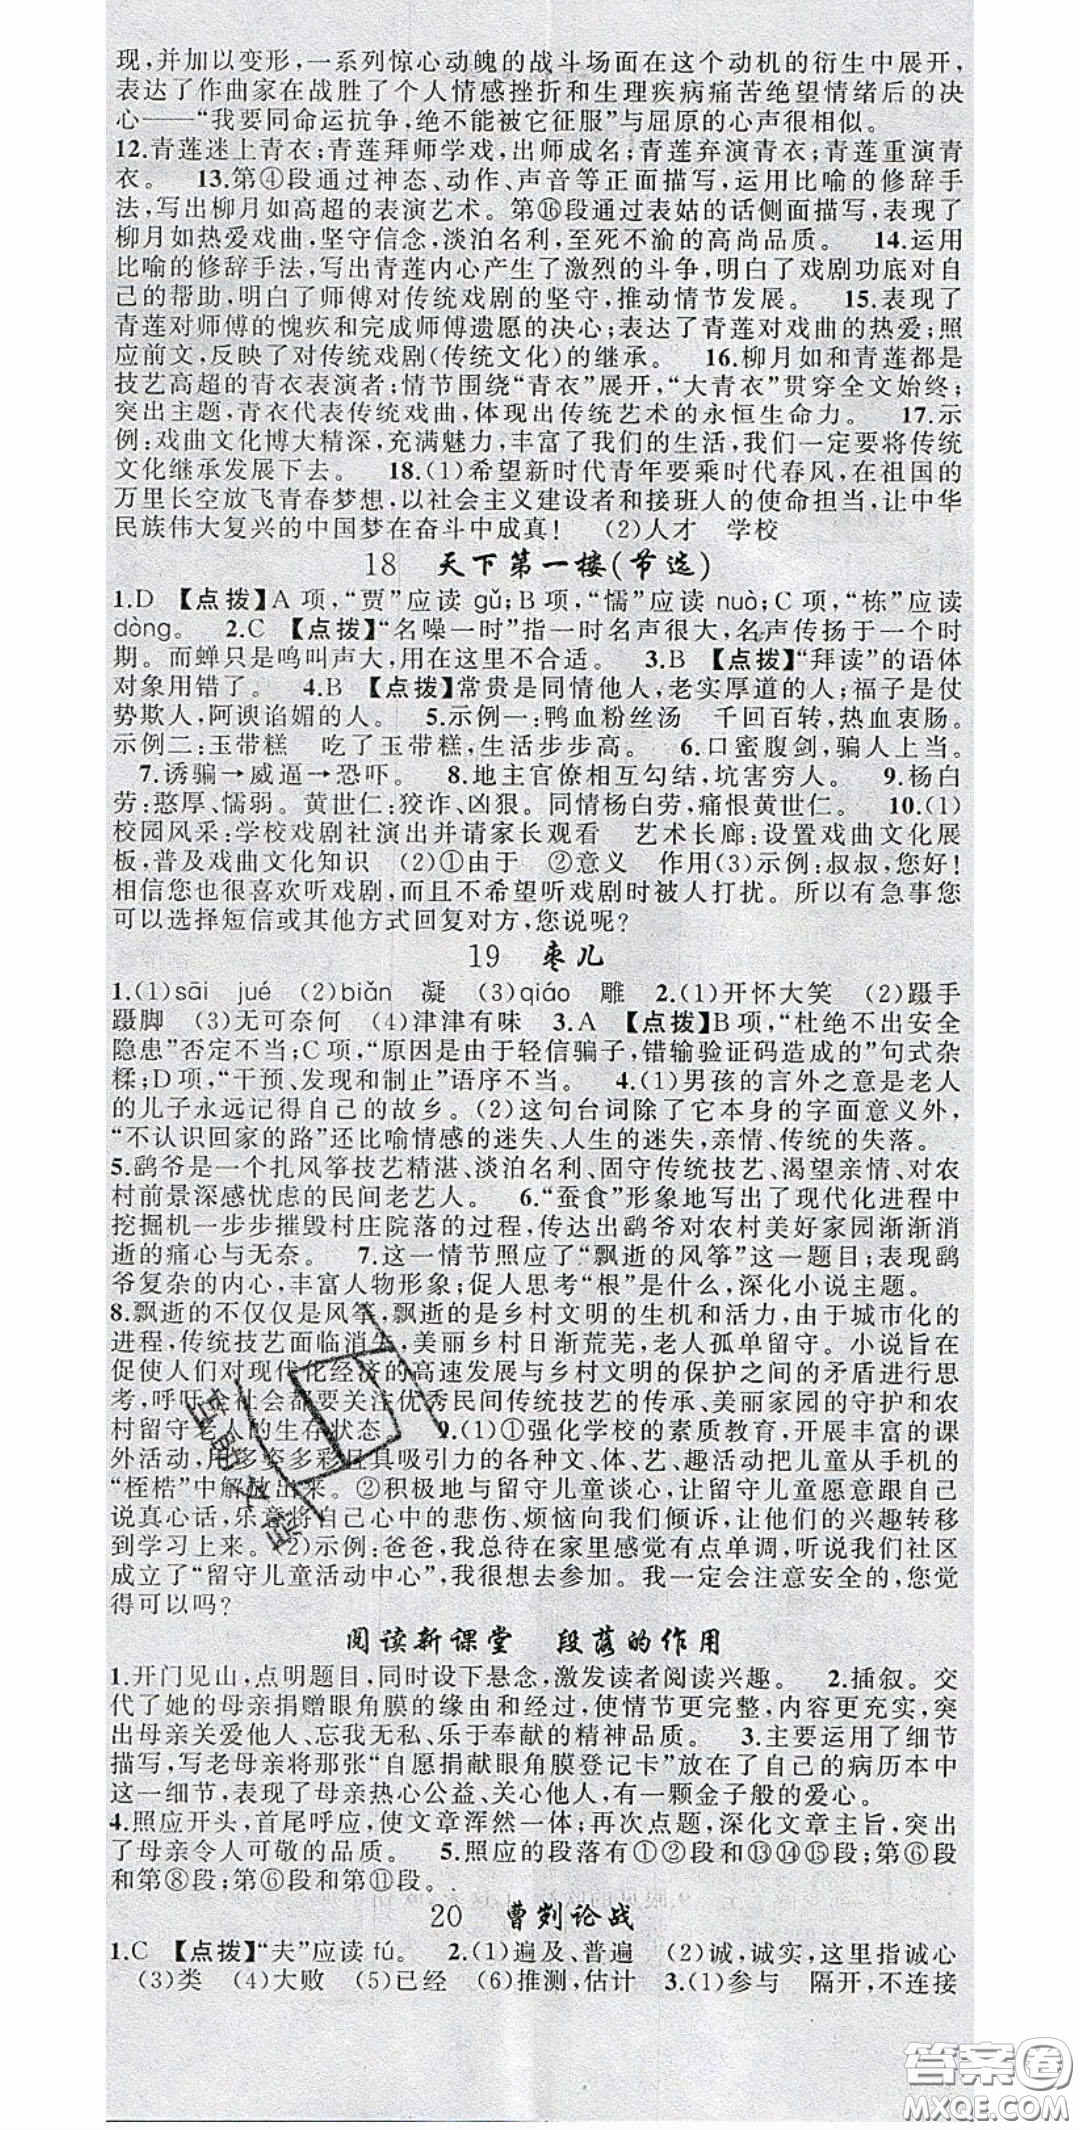 现,并加以变形,一系列惊心动魄的战斗场面在这个动机的衍生中展开,
表达了作曲家在战胜了个人情感挫折和生理疾病痛苦绝望情绪后的决
心——“我要同命运抗争,绝不能被它征服”与屈原的心声很相似。
12.青莲迷上青衣;青莲拜师学戏,出师成名;青莲弃演青衣;青莲重演青
衣。 13.第④段通过神态、动作、声音等正面描写,运用比喻的修辞手
法,写出柳月如高超的表演艺术。第⑯段通过表姑的话侧面描写,表现了
柳月如热爱戏曲,坚守信念,淡泊名利,至死不渝的高尚品质。 14.运用
比喻的修辞手法,写出青莲内心产生了激烈的斗争,明白了戏剧功底对自
己的帮助,明白了师傅对传统戏剧的坚守,推动情节发展。 15.表现了
青莲对师傅的愧疚和完成师傅遗愿的决心;表达了青莲对戏曲的热爱;照
应前文,反映了对传统戏剧(传统文化)的继承。 16.柳月如和青莲都是
技艺高超的青衣表演者;情节围绕“青衣”展开,“大青衣”贯穿全文始终;
突出主题,青衣代表传统戏曲,体现出传统艺术的永恒生命力。 17.示
例:戏曲文化博大精深,充满魅力,丰富了我们的生活,我们一定要将传统
文化继承发展下去。 18.(1)希望新时代青年要乘时代春风,在祖国的
万里长空放飞青春梦想,以社会主义建设者和接班人的使命担当,让中华
民族伟大复兴的中国梦在奋斗中成真! (2)人才 学校
18 天下第一楼(节选)
1.D 【点拨】A 项,“贾”应读 gǔ;B 项,“懦”应读 nuò;C 项,“栋”应读
dòng。 2.C 【点拨】“名噪一时”指一时名声很大,名声传扬于一个时
期。而蝉只是鸣叫声大,用在这里不合适。 3.B 【点拨】“拜读”的语体
对象用错了。 4.B 【点拨】常贵是同情他人,老实厚道的人;福子是仗
势欺人,阿谀谄媚的人。 5.示例一:鸭血粉丝汤 千回百转,热血衷肠。
示例二:玉带糕 吃了玉带糕,生活步步高。 6.口蜜腹剑,骗人上当。
7.诱骗→威逼→恐吓。 8.地主官僚相互勾结,坑害穷人。 9.杨白
劳:憨厚、懦弱。黄世仁:狡诈、凶狠。同情杨白劳,痛恨黄世仁。 10.(1)
校园风采:学校戏剧社演出并请家长观看 艺术长廊:设置戏曲文化展
板,普及戏曲文化知识 (2)①由于 ②意义 作用(3)示例:叔叔,您好!
相信您也很喜欢听戏剧,而且不希望听戏剧时被人打扰。所以有急事您
可以选择短信或其他方式回复对方,您说呢?
19 枣儿
1.(1)sāi jué (2)biǎn 凝 (3)qiáo 雕 2.(1)开怀大笑 (2)蹑手
蹑脚 (3)无可奈何 (4)津津有味 3.A 【点拨】B项,“杜绝不出安全
隐患”否定不当;C项,“原因是由于轻信骗子,错输验证码造成的”句式杂
糅;D项,“干预、发现和制止”语序不当。 4.(1)男孩的言外之意是老人
的儿子永远记得自己的故乡。(2)这句台词除了它本身的字面意义外,
“不认识回家的路”还比喻情感的迷失、人生的迷失,亲情、传统的失落。
5.鹞爷是一个扎风筝技艺精湛、淡泊名利、固守传统技艺、渴望亲情、对农
村前景深感忧虑的民间老艺人。 6.“蚕食”形象地写出了现代化进程中
挖掘机一步步摧毁村庄院落的过程,传达出鹞爷对农村美好家园渐渐消
逝的痛心与无奈。 7.这一情节照应了“飘逝的风筝”这一题目;表现鹞
爷复杂的内心,丰富人物形象;促人思考“根”是什么,深化小说主题。
8.飘逝的不仅仅是风筝,飘逝的是乡村文明的生机和活力,由于城市化的
进程,传统技艺面临消失,美丽乡村日渐荒芜,老人孤单留守。小说旨在
促使人们对现代化经济的高速发展与乡村文明的保护之间的矛盾进行思
考,呼吁全社会都要关注优秀民间传统技艺的传承、美丽家园的守护和农
村留守老人的生存状态。 9.(1)①强化学校的素质教育,开展丰富的课
外活动,用多姿多彩且具吸引力的各种文、体、艺、趣活动把儿童从手机的
“桎梏”中解放出来。②积极地与留守儿童谈心,让留守儿童愿意跟自己
说真心话,乐意将自己心中的悲伤、烦恼向我们倾诉,让他们的兴趣转移
到学习上来。(2)示例:爸爸,我总待在家里感觉有点单调,听说我们社区
成立了“留守儿童活动中心”,我很想去参加。我一定会注意安全的,您觉
得可以吗?
阅读新课堂 段落的作用
1.开门见山,点明题目,同时设下悬念,激发读者阅读兴趣。 2.插叙。交
代了她的母亲捐赠眼角膜的缘由和经过,使情节更完整,内容更充实,突
出母亲关爱他人、忘我无私、乐于奉献的精神品质。 3.主要运用了细节
描写,写老母亲将那张“自愿捐献眼角膜登记卡”放在了自己的病历本中
这一细节,表现了母亲热心公益、关心他人,有一颗金子般的爱心。
4.照应开头,首尾呼应,使文章浑然一体;再次点题,深化文章主旨,突出
了母亲令人可敬的品质。 5.照应的段落有①②段和⑬⑭⑮段;第⑥段
和第⑧段;第⑥段和第⑪段。
20 曹刿论战
1.C 【点拨】“夫”应读 fú。 2.(1)遍及、普遍 (2)诚,诚实,这里指诚心
(3)类 (4)大败 (5)已经 (6)推测,估计 3.(1)参与 隔开,不连接
答案圈
MXQE.COM